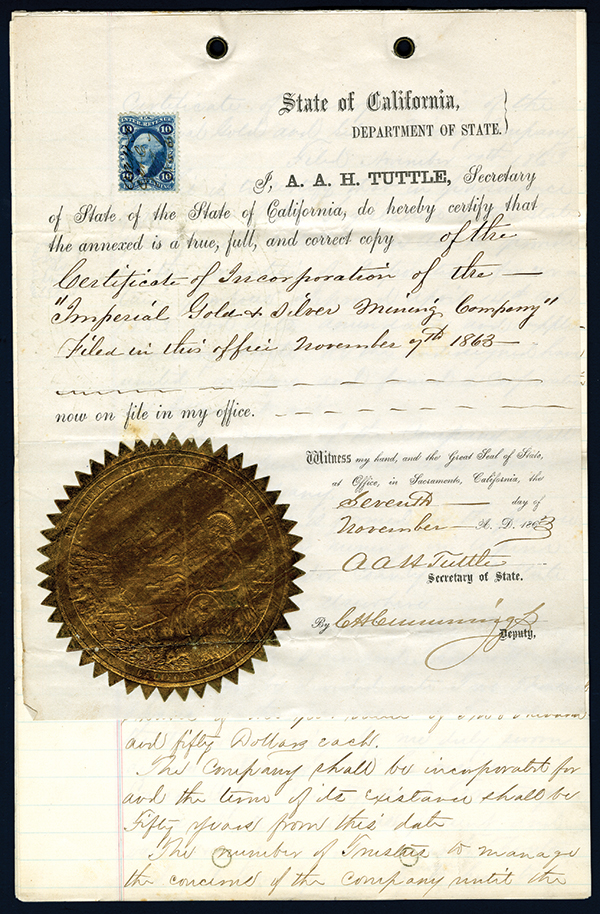 State of California,
DEPARTMENT OF STATE.
10 10
I, A. A. H. TUTTLE, Secretary
of State of the State of California, do hereby certify that
the annexed is a true, full, and correct copy of the
Certificate of Incorporation of the
"Imperial Gold & Silver Mining Company"
Filed in this office November 7th 1863
now on file in my office.
Witness my hand, and the Great Seal of State,
at Office, in Sacramento, California, the
Seventh day of
November A. D. 1863
A A H Tuttle
Secretary of State.
By C H Cummings
Deputy.
and fifty Dollars each.
The Company shall be incorporated for
and the term of its Existance shall be
Fifty years from this date
The number of Trustees to manage
the concerns of the company until the